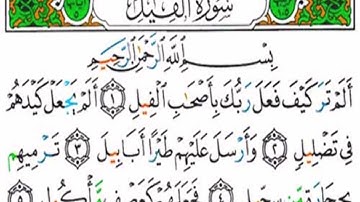 سُورَةُ الفِيلِ
بِسْمِ اللَّهِ الرَّحْمَٰنِ الرَّحِيمِ
أَلَمْ تَرَ كَيْفَ فَعَلَ رَبُّكَ بِأَصْحَابِ الْفِيلِ ۝١ أَلَمْ يَجْعَلْ كَيْدَهُمْ
فِي تَضْلِيلٍ ۝٢ وَأَرْسَلَ عَلَيْهِمْ طَيْرًا أَبَابِيلَ ۝٣ تَرْمِيهِم
بِحِجَارَةٍ مِّن سِجِّيلٍ ۝٤ فَجَعَلَهُمْ كَعَصْفٍ مَّأْكُولٍ ۝٥